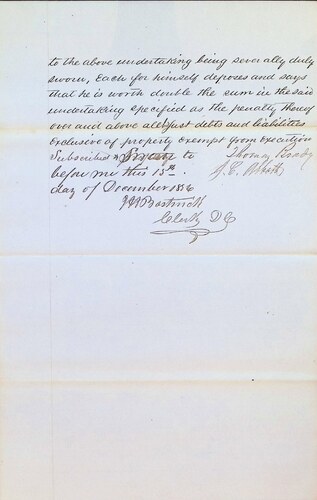 to the above undertaking being severally duly
sworn, Each for himself deposes and says
that he is worth double the sum in the said
undertaking specified as the penalty thereof
over and above all just debts and liabilities
exclusive of property exempt from execution
Subscribed & Sworn to Thomas Brady
before me this 15th J. E.
day of December 1856
Bostwick
Clerk D C